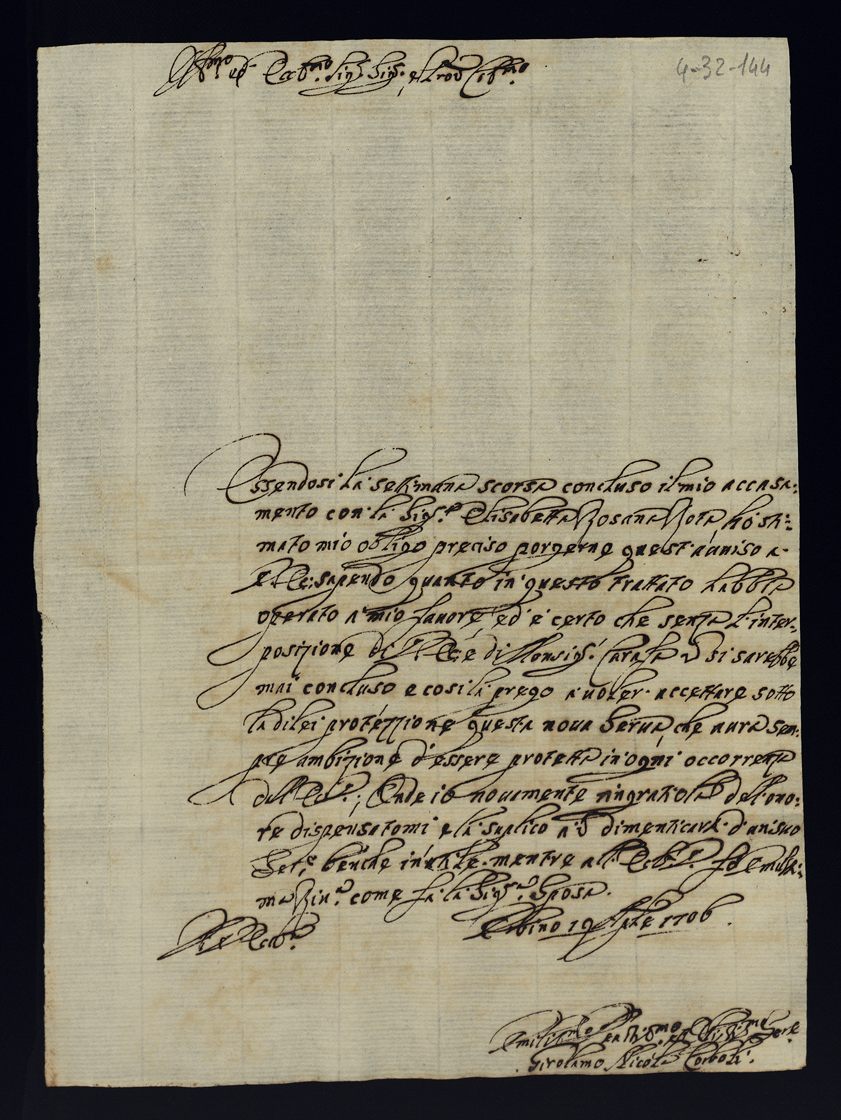 4-32-144
Ill.mo et Ecc.mo Sig.r Sig.r e Pron Col.mo
Essendosi la setimana scorsa concluso il mio accasa=
mento con la Sig.ra Elisabetta Rosana Rota hò sti=
mato mio obligo preciso porgerne quest'auuiso a
V.E.: sapendo quanto in questo tratato habbia
operato à mio fauore, ed è certo che senza l'inter=
posizione di V.E. e di Monsig.r Carafa si sarebbe
mai concluso e cosi la prego à uoler accettare sotto
la di lei protezzione questa noua Serua che aurà sem=
pre ambizione d'essere protetta in ogni occorrenza
dell' Ecc.; Onde io nouamente ringratiola del ono=
re dispensatomi e la suplico à dimenticarà d'un suo
Ser.e benche inutile mentre all' Ecc.
ma come fà la Sig.ra Sposa.
Vrbino 19 1706.
Di V. Ecc.za
Vmiliss.mo Ser.e
Girolamo Nicola Corboli.